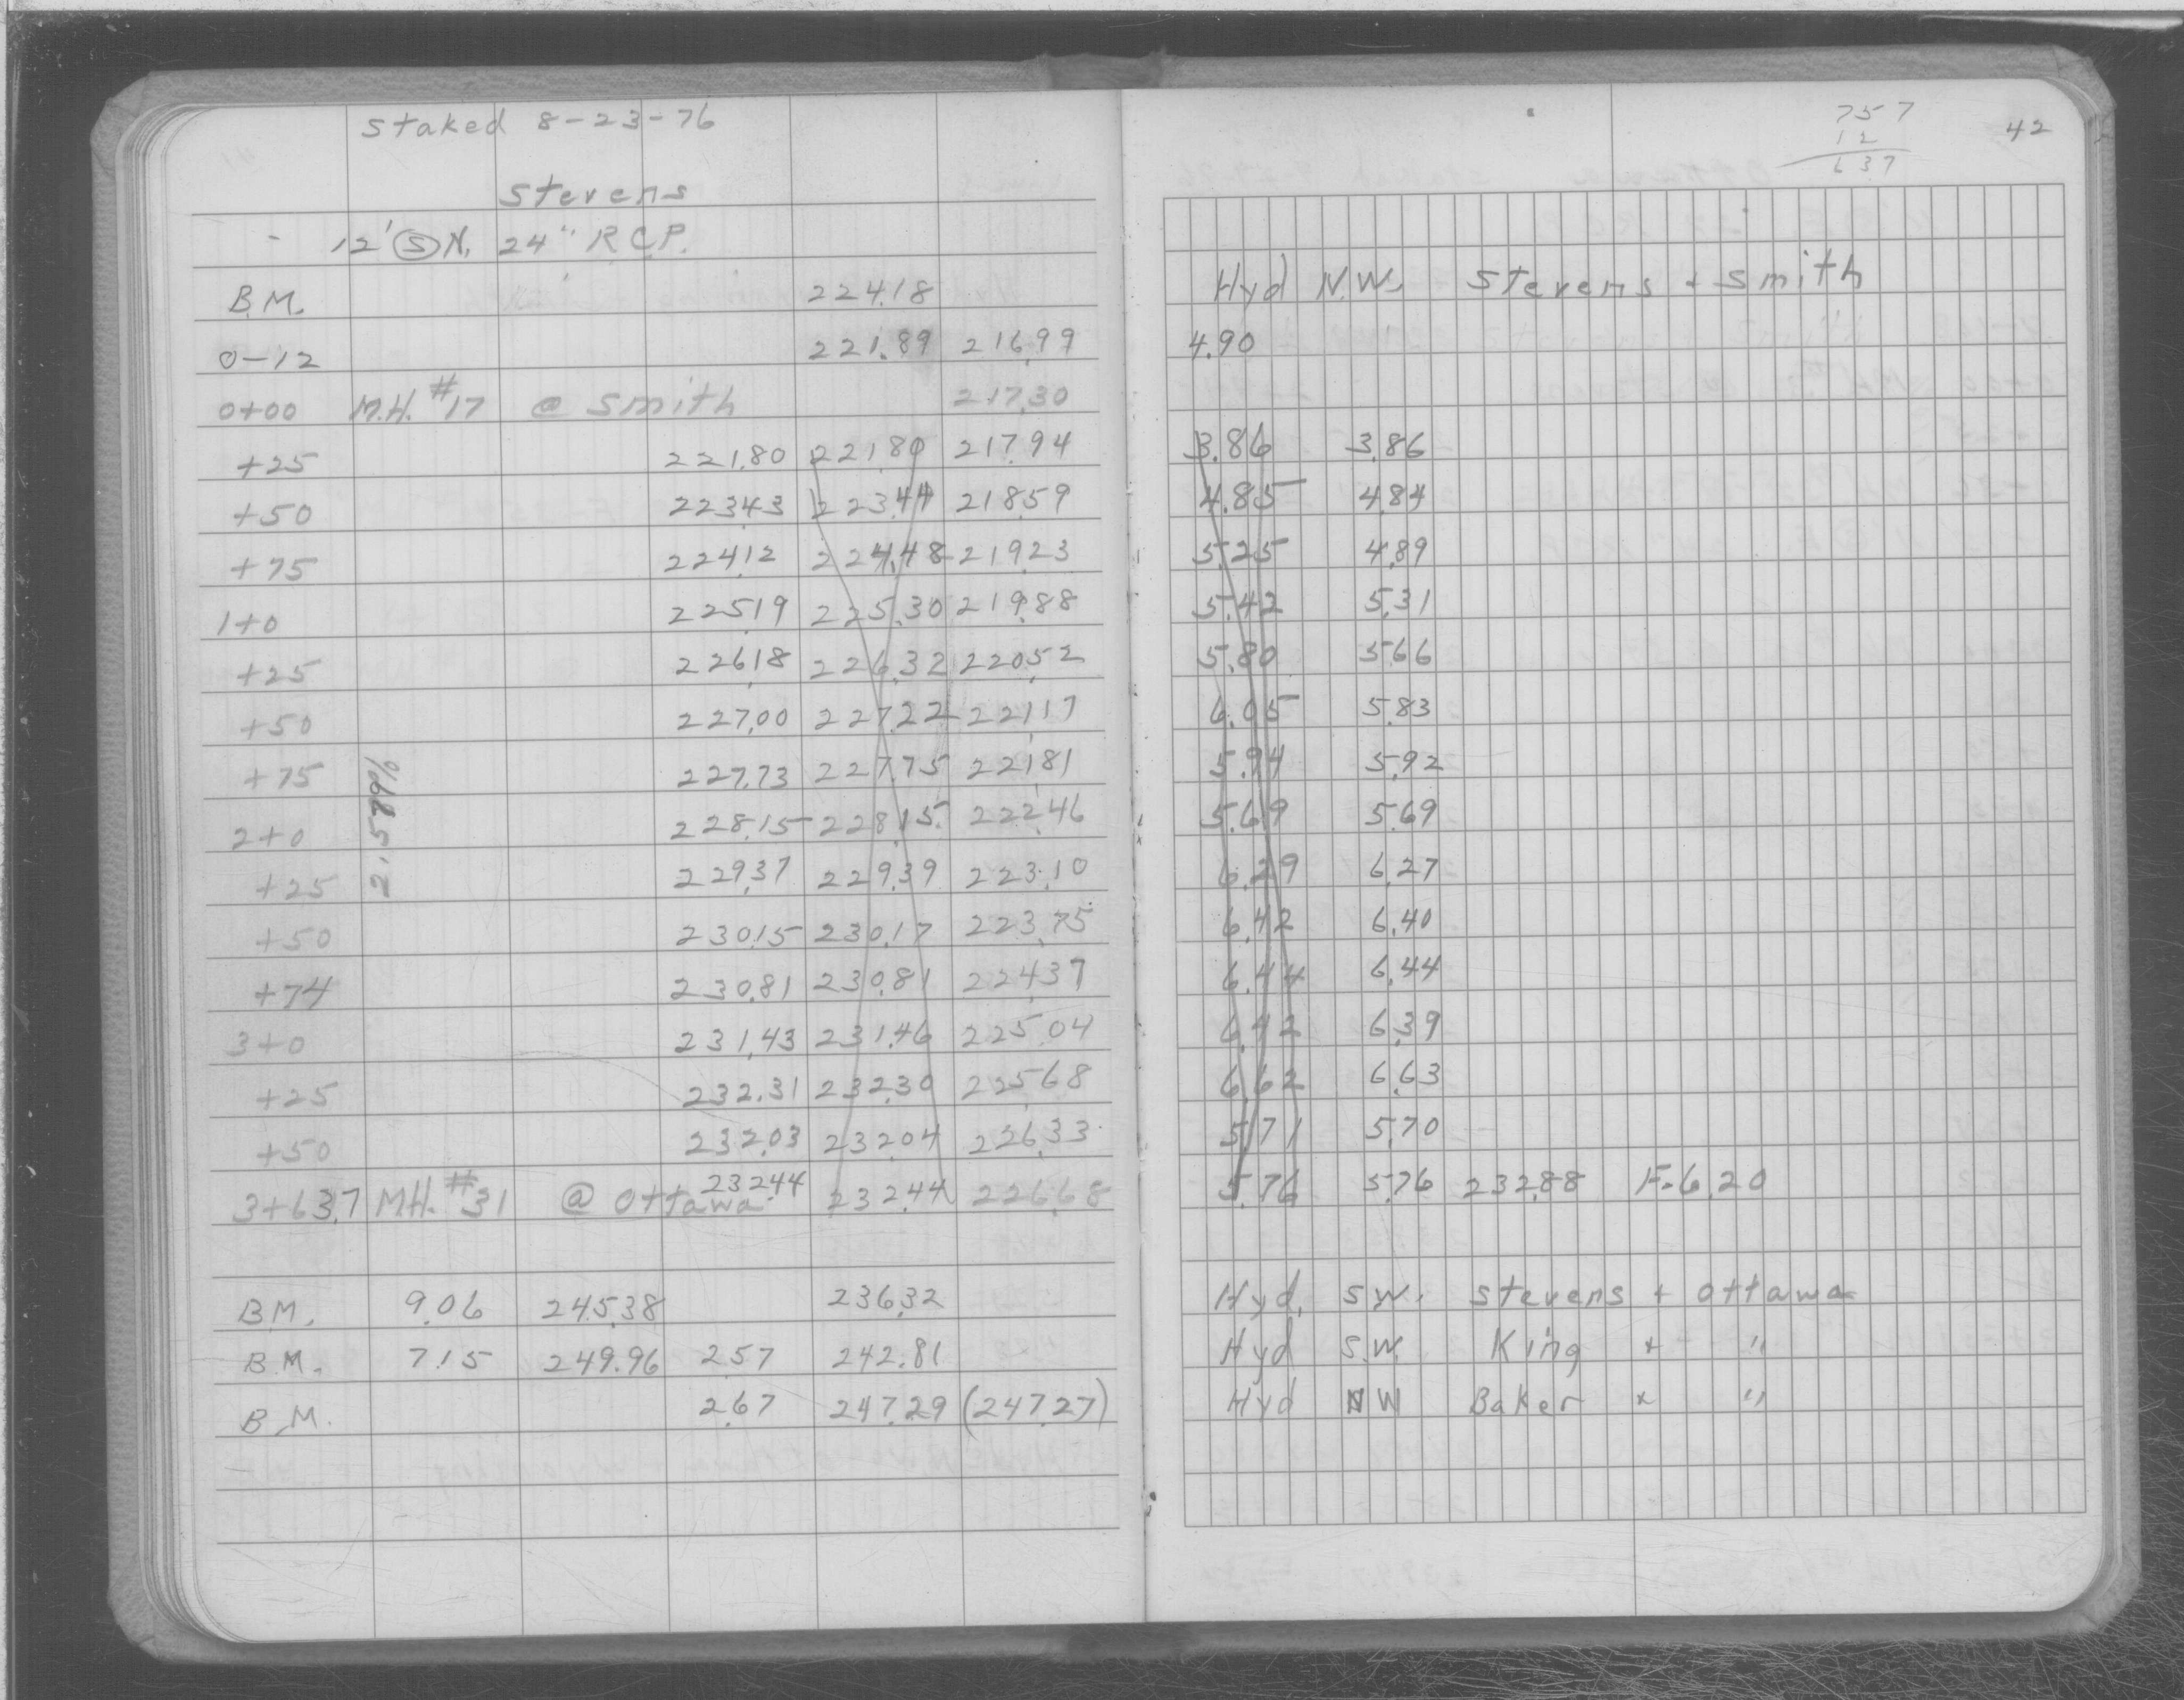 staked 8-23-76
Stevens
- 12' Ⓢ N. 24" R.C.P.
B.M. 224.18
0-12 221.89 216.99
0+00 M.H. #17 @ Smith 217.30
+25 221.80 221.80 217.94
+50 223.43 223.44 218.59
+75 224.12 224.48 219.23
1+0 225.19 225.30 219.88
+25 226.18 226.32 220.52
+50 227.00 227.22 221.17
+75 227.73 227.75 221.81
2+0 228.15 228.15 222.46
+25 229.37 229.39 223.10
+50 230.15 230.17 223.75
+74 230.81 230.81 224.37
3+0 231.43 231.46 225.04
+25 232.31 232.30 225.68
+50 232.03 232.04 226.33
3+63.7 MH. #31 @ Ottawa 232.44 232.44 226.68
B.M. 9.06 245.38 236.32
B.M. 7.15 249.96 2.57 242.81
B.M. 2.67 247.29 (247.27)
757
12
637
42
Hyd N.W. Stevens + Smith
4.90
3.86 3.86
4.85 4.84
5.25 4.89
5.42 5.31
5.80 5.66
6.05 5.83
5.94 5.92
5.69 5.69
6.29 6.27
6.42 6.40
6.44 6.44
6.42 6.39
6.62 6.63
5.71 5.70
5.76 5.76 232.88 F=6.20
Hyd. S.W. Stevens + Ottawa
Hyd S.W. King + "
Hyd NW Baker + "